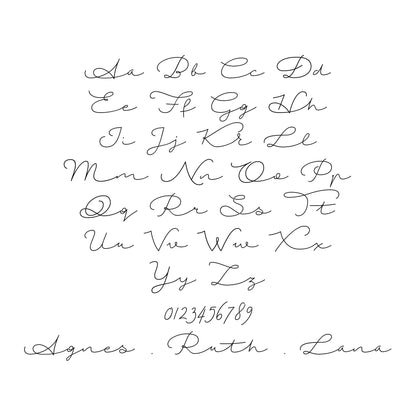 Aa Bb Cc Dd
Ee Ff Gg Hh
Ii Jj Kr Ll
Mm Nn Oo Pp
Qq Rr Ss Tt
Uu Vv Ww Xx
Yy Zz
0123456789
Agnes . Ruth . Lana